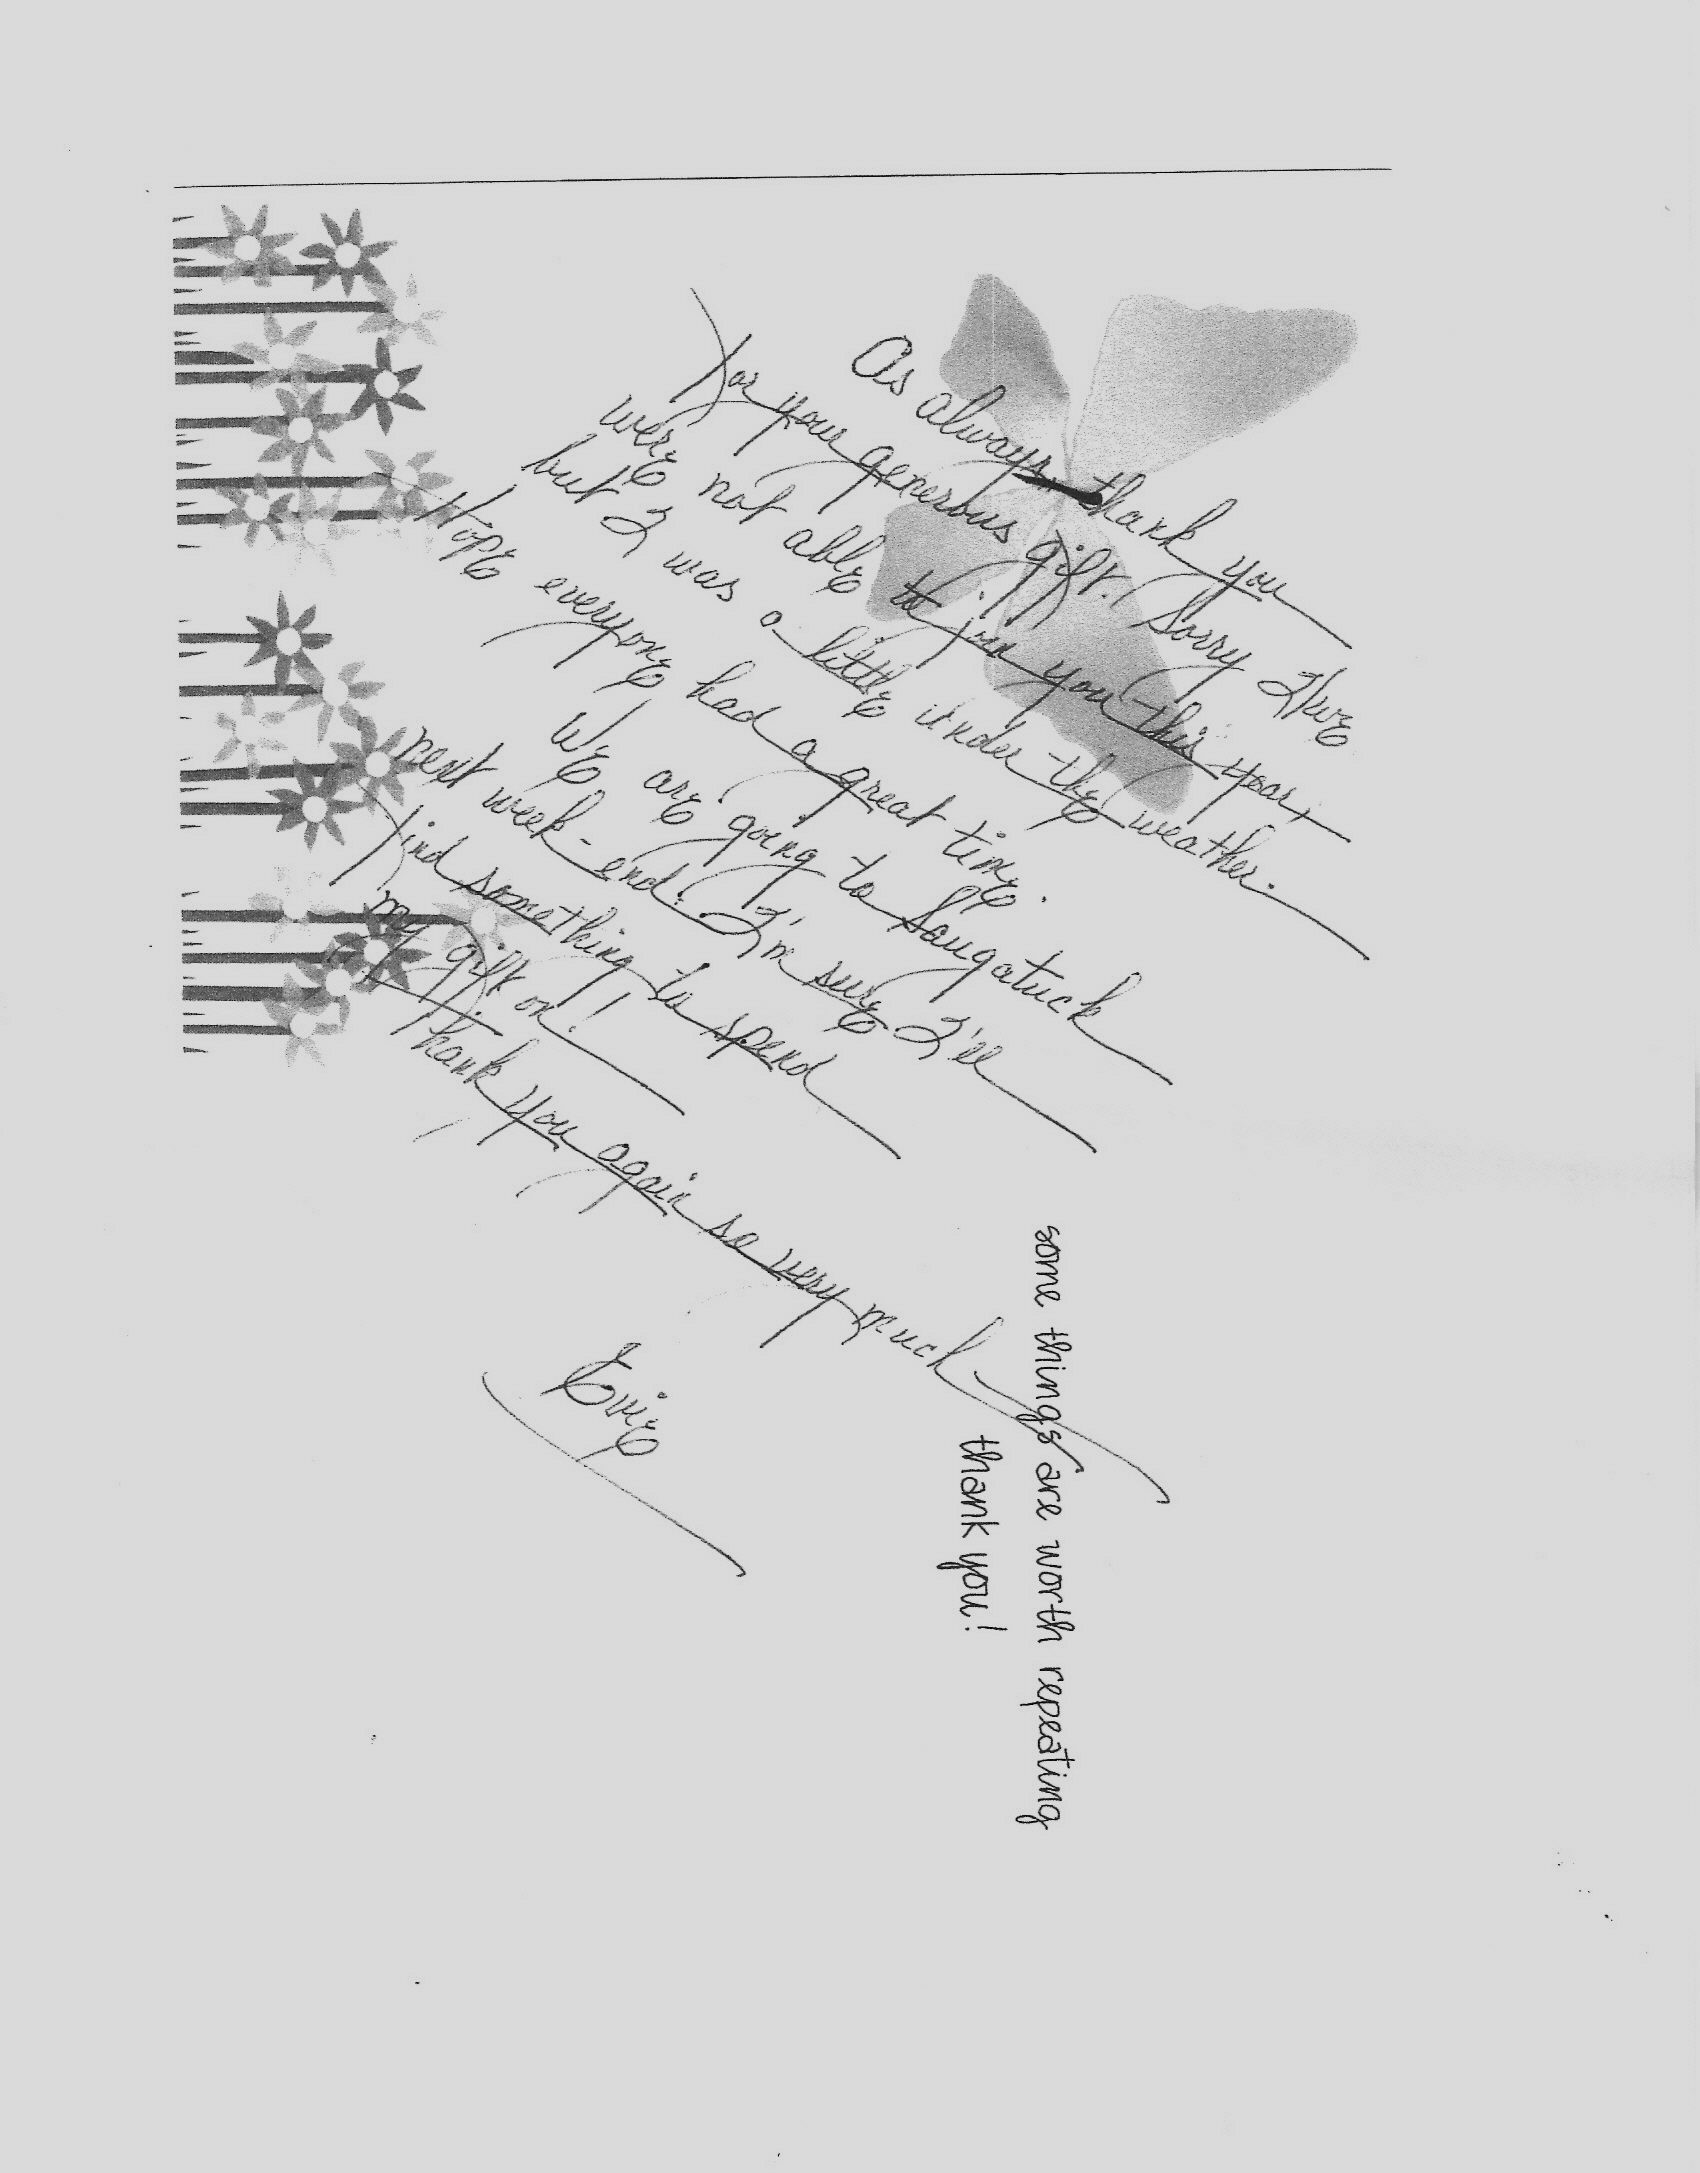 As always - thank you
for your generous gift. Sorry I/we
were not able to join you this year,
but I was a little under the weather.
Hope everyone had a great time.
We are going to Saugatuck
next week-end. I'm sure I'll
find something to spend
my gift on!
Thank you again so very much
Evie
some things are worth repeating
thank you!